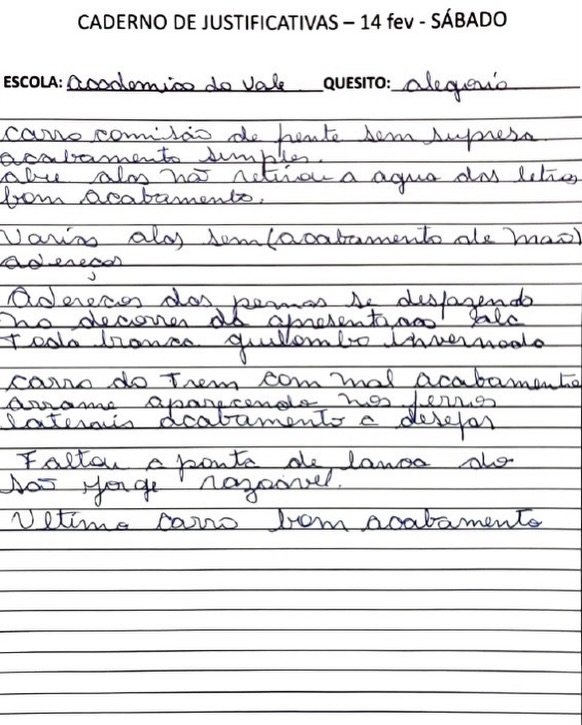 CADERNO DE JUSTIFICATIVAS – 14 fev - SÁBADO
ESCOLA: Academicos do Vale QUESITO: alegoria
carro comissão de frente sem supresa
acabamento simples.
abre alas não retirou a agua das letras
bom acabamento.
Varias alas sem (acabamento de mão)
adereços
Adereços das pernas se desfazendo
no decorrer da apresentação
toda branca quilombo invernada
carro do Trem com mal acabamento
arrame aparecendo nos ferros
laterais acabamento a desejar
Faltou a ponta de lança do
são jorge razoável.
Ultimo carro bom acabamento